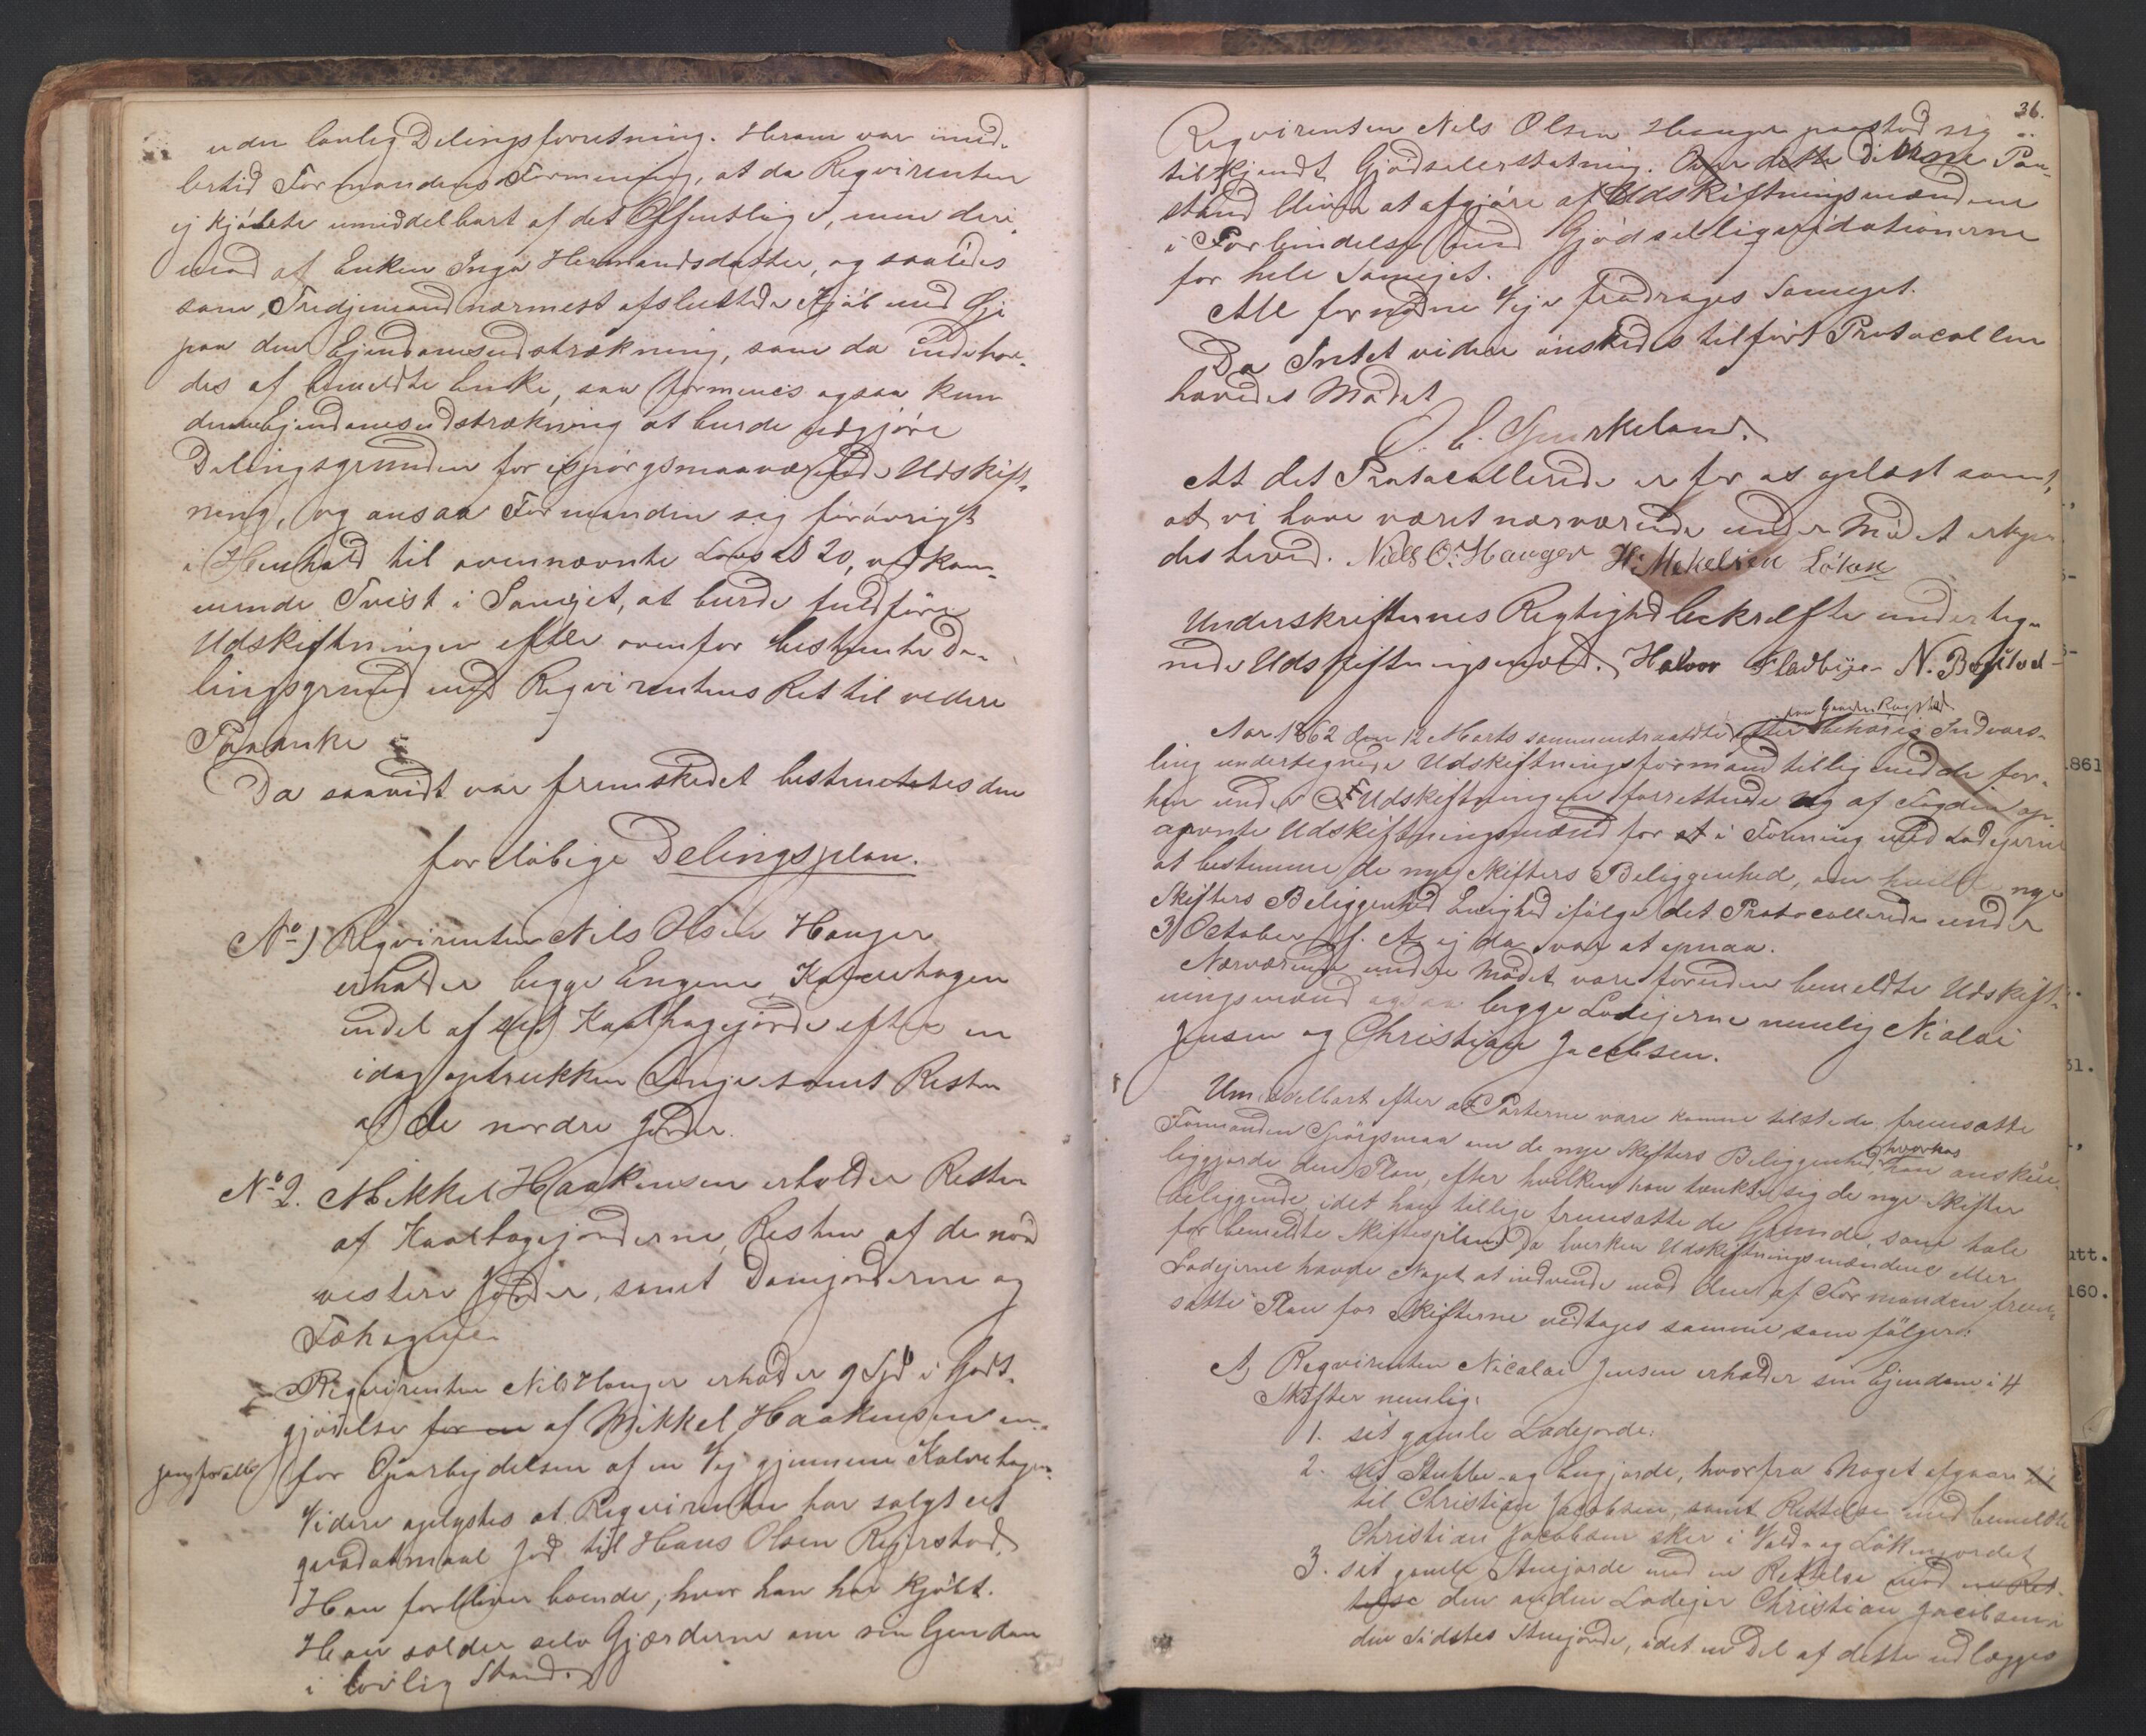 uden lovlig Delingsforretning. Herom var imid-
lertid Formandens Formening, at da Reqvirenten
ej kjøbte umiddelbart af det Offentlige, men der i-
mod af Enken Inga Hermandsdatter, og saaledes
som Tredjemand nærmest afsluttede Kjøb med Gje
paa den Ejendomsudstrækning, som da indehave-
des af bemeldte Enke, saa formenes ogsaa kun
denne Ejendomsudstrækning at burde udgjøre
Delingsgrunden for ispørgsmaaværende Udskift-
ning, og ansaa Formanden sig forøvrigt
i Henhold til ovennævnte Lovs § 20, vedkom-
mende Tvist i Samejet, at burde fuldføre
Udskiftningen efter ovenfor bestemte De-
lingsgrund med Reqvirentens Ret til videre
Paaanke
Da saavidt var fremskedet bestemtes den
foreløbige Delingsplan.
No 1) Reqvirenten Nils Olsen Hauger
erholder begge Engene, Kalvenhagen
endel af sit Kaalhagejorde efter en
idag optrukken Linje samt Resten
af de nordre Jorder.
No 2. Mikkel Haakensen erholder Resten
af Kaalhagejorderne, Resten af de nord
vestere Jorder, samt Damjorderne og
Fæhagen.
Reqvirenten Nils Hauger erholder 9 Spd i Godt-
gjørelse for en af Mikkel Haakensen en-
gang for alle for Oparbejdelsen af en Vej gjennem Kalvehagen.
Videre oplystes at Reqvirenten har solgt et
qvadatmaal Jord til Hans Olsen Rejerstad.
Han forbliver boende, hvor han har kjøbt.
Han holder selv Gjærderne om sin Ejendom
i lovlig Stand.
36.
Reqvirenten Nils Olsen Hauger paastod sig
tilkjendt Gjødselerstatning. Over dette Denne Paa-
stand bliver at afgjøre af Udskiftningsmændene
i Forbindelse med Gjødselliqvidationerne
for hele Samejet.
Alle fornødne Veje fradrages Samejet.
Da Intet videre ønskedes tilført Protocollen
hævedes Mødet
At det Protocollerede er for os oplæst samt,
at vi have været nærværende under Mødet erkjen-
des herved. Niels O: Hauger H: Mekelsen Löken
Underskrifternes Rigtighed bekræfte underteg-
nede Udskiftningsmænd. Halvor Fladbÿe N. Bogstad
paa Gaarden Rogstad.
Aar 1862 den 12 Marts sammentraadte efter behørig Indvars-
ling undertegnede Udskiftningsformand tillige med de for-
hen under Udskiftningen forrettende og af Fogden op-
nævnte Udskiftningsmænd for at i Forening med Lodejerne
at bestemme de nye Skifters Beliggenhed, om hvilke nye
Skifters Beliggenhed Enighed ifølge det Protocollerede under
31 October f. A. ej da var at opnaa.
Nærværende under Mødet vare foruden bemeldte Udskift-
ningsmænd ogsaa begge Lodejerne nemlig Nicolai
Jensen og Christian Jacobsen.
Umiddelbart efter at Parterne vare komne tilstede, fremsatte
Formanden Spørgsmaa om de nye Skifters Beliggenhed, hvorhos han anskue-
liggjorde den Plan, efter hvilken han tænkte sig de nye Skifter
beliggende, idet han tillige fremsatte de Grunde, som tale
for bemeldte Skiftesplan. Da hverken Udskiftningsmændene eller
Lodejerne havde Noget at indvende mod den af Formanden frem-
satte Plan for Skifterne vedtages samme som følger:
A, Reqvirenten Nicolai Jensen erholder sin Ejendom i 4
Skifter nemlig:
1. sit gamle Ladejorde.
2. sit Stubbe- og Engjorde, hvorfra Noget afgaar til
til Christian Jacobsen, samt Rettelse med bemeldte
Christian Jacobsen sker i Vold- og Løkenjordet
3. sit gamle Stuejorde med en Rettelse med en Ret-
telse den anden Lodejer Christian Jacobsen i
den Sidstes Stuejorde, idet en Del af dette udlægges
861
51.
utt.
160.